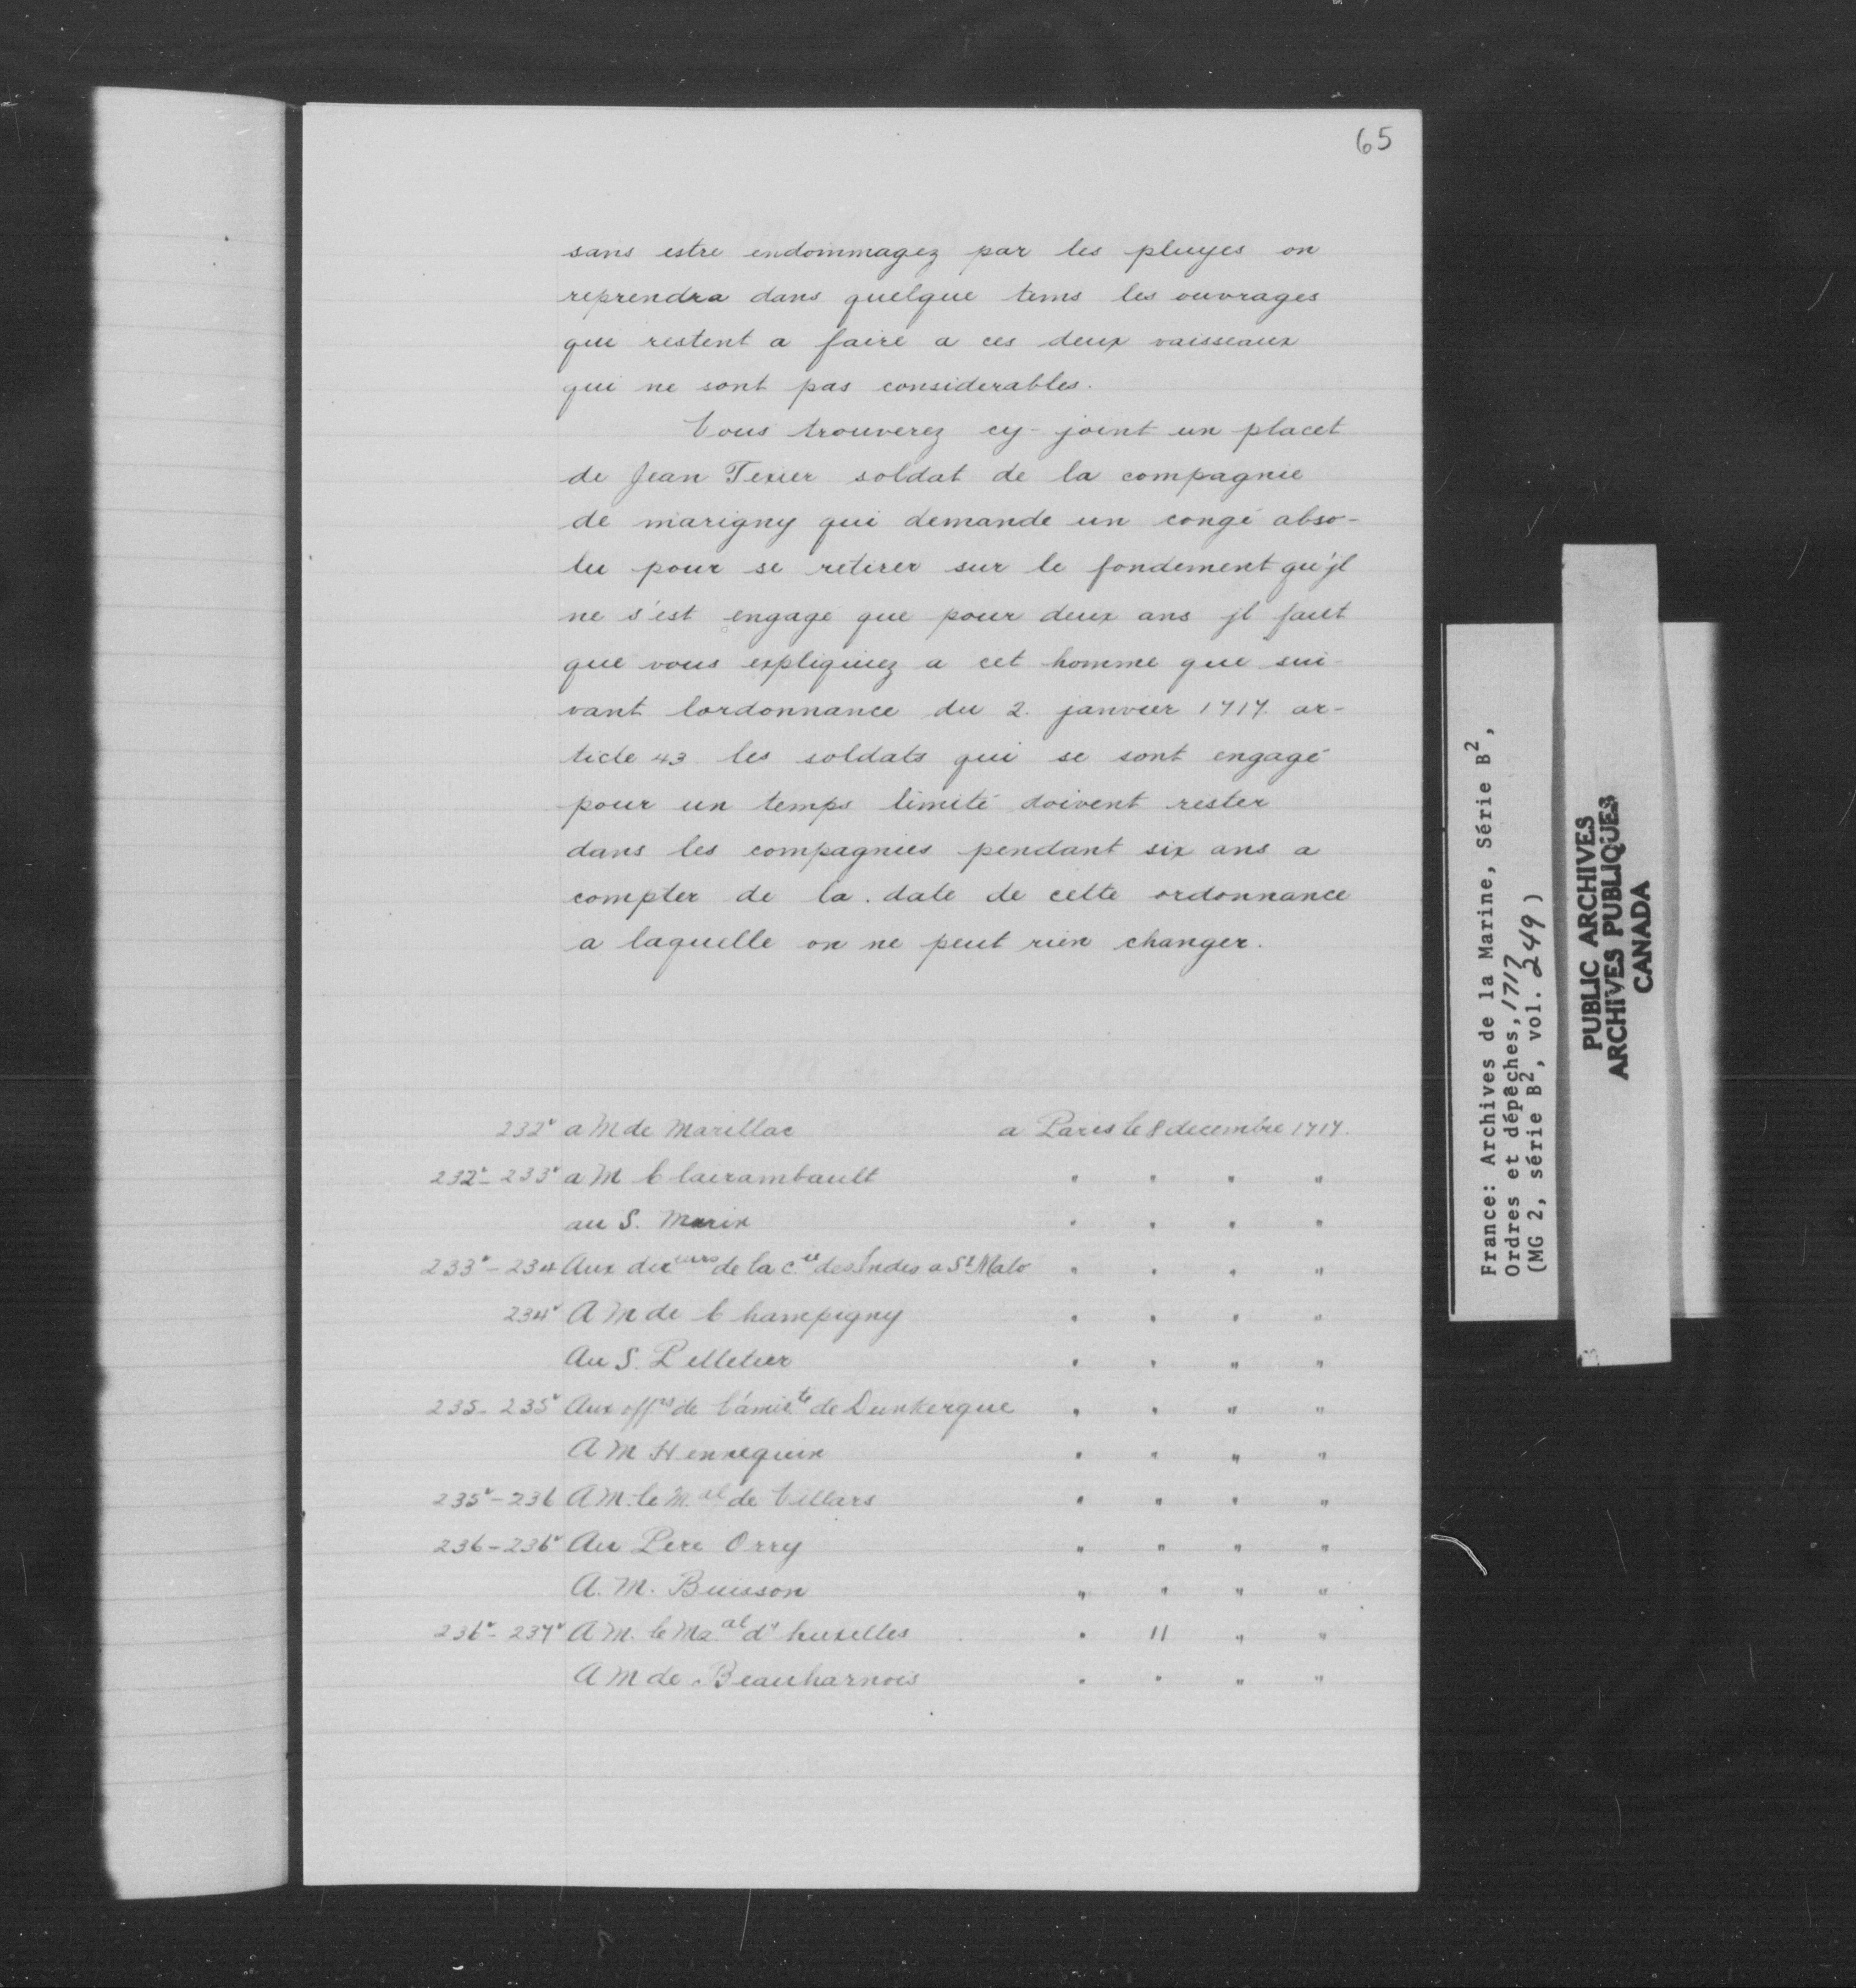 65
sans estre endommagez par les pluyes on
reprendra dans quelque tems les ouvrages
qui restent a faire a ces deux vaisseaux
qui ne sont pas considerables.
Vous trouverez cy-joint un placet
de Jean Texier soldat de la compagnie
de marigny qui demande un congé abso-
lu pour se retirer sur le fondement qu'jl
ne s'est engagé que pour deux ans jl faut
que vous expliquiez a cet homme que sui-
vant lordonnance du 2. janvier 1717. ar-
ticle 43 les soldats qui se sont engagé
pour un temps limité doivent rester
dans les compagnies pendant six ans a
compter de la date de cette ordonnance
a laquelle on ne peut rien changer.
232v a M de Marillac a Paris le 8 decembre 1717.
232v - 233v a M Clairambault " " " "
au S. Marin " " " "
233v - 234 Aux direurs de la cie des Indes a St Malo " " " "
234v A M de Champigny " " " "
Au S. Pelletier " " " "
235 - 235v Aux offrs de l'amirte de Dunkerque " " " "
A M Hennequin " " " "
235v - 236 A M. le M.al de Villars " " " "
236 - 236v Au Pere Orry " " " "
A. M. Buisson " " " "
236v - 237v A M. le Mal d'huxelles " 11 " "
A M de Beauharnois " " " "
France: Archives de la Marine, Série B2,
Ordres et dépêches, 1717
(MG 2, série B2, vol. 249)
PUBLIC ARCHIVES
ARCHIVES PUBLIQUES
CANADA